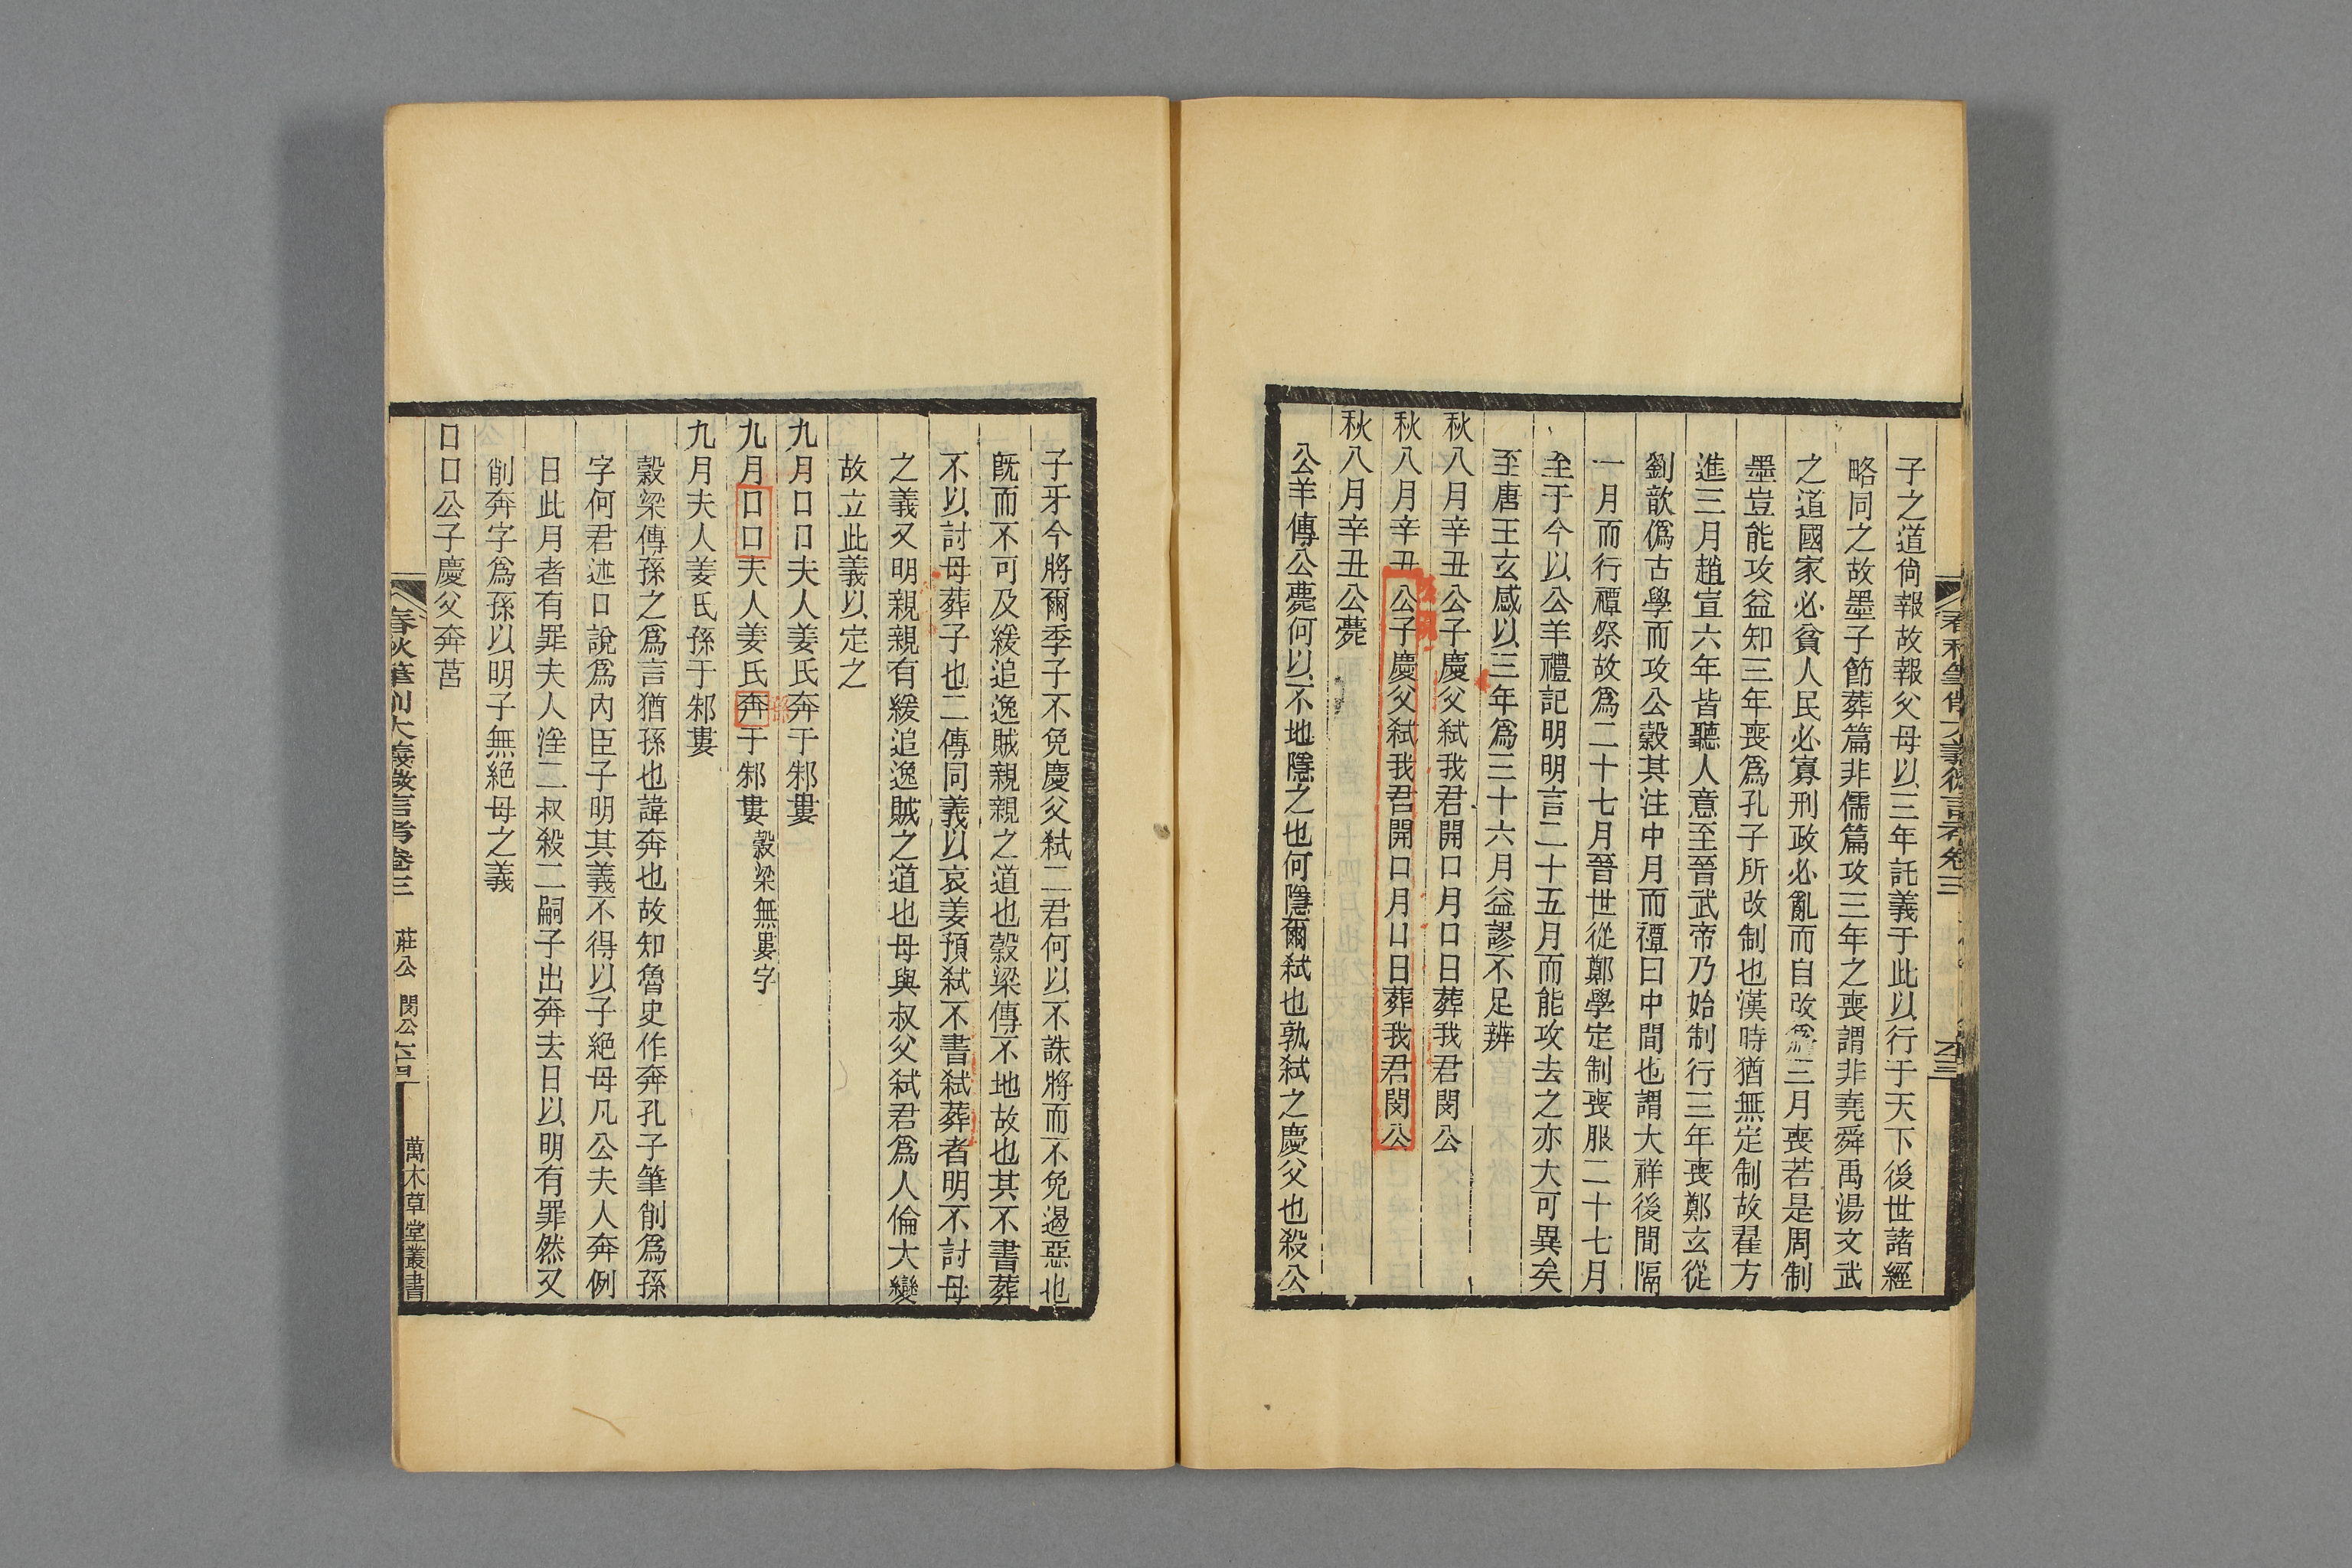 春秋筆削大義微言考卷三
子之道倘報故報父母以三年託義于此以行于天下後世諸經
略同之故墨子節葬篇非儒篇攻三年之喪謂非堯舜禹湯文武
之道國家必貧人民必寡刑政必亂而自改為三月喪若是周制
墨豈能攻益知三年喪爲孔子所改制也漢時猶無定制故翟方
進三月趙宣六年皆聽人意至晉武帝乃始制行三年喪鄭玄從
劉歆僞古學而攻公穀其注中月而禫曰中間也謂大祥後間隔
一月而行禫祭故爲二十七月晉世從鄭學定制喪服二十七月
至于今以公羊禮記明明言二十五月而能攻去之亦大可異矣
至唐王玄感以三年爲三十六月益謬不足辨
秋八月辛丑公子慶父弑我君開口月口日葬我君閔公
秋八月辛丑公子慶父弑我君開口月口日葬我君閔公
秋八月辛丑公薨
公羊傳公薨何以不地隱之也何隱爾弑也孰弑之慶父也殺公
子牙今將爾季子不免慶父弑二君何以不誅將而不免遏惡也
旣而不可及緩追逸賊親親之道也穀梁傳不地故也其不書葬
不以討母葬子也二傳同義以哀姜預弑不書弑葬者明不討母
之義又明親親有緩追逸賊之道也母與叔父弑君爲人倫大變
故立此義以定之
九月口口夫人姜氏奔于邾婁
九月口口夫人姜氏奔于邾婁 穀梁無婁字
孫
九月夫人姜氏孫于邾婁
穀梁傳孫之爲言猶孫也諱奔也故知魯史作奔孔子筆削爲孫
字何君述口說爲內臣子明其義不得以子絕母凡公夫人奔例
日此月者有罪夫人淫二叔殺二嗣子出奔去日以明有罪然又
削奔字爲孫以明子無絕母之義
口口公子慶父奔莒
春秋筆削大義微言考卷三 莊公 閔公 萬木草堂叢書